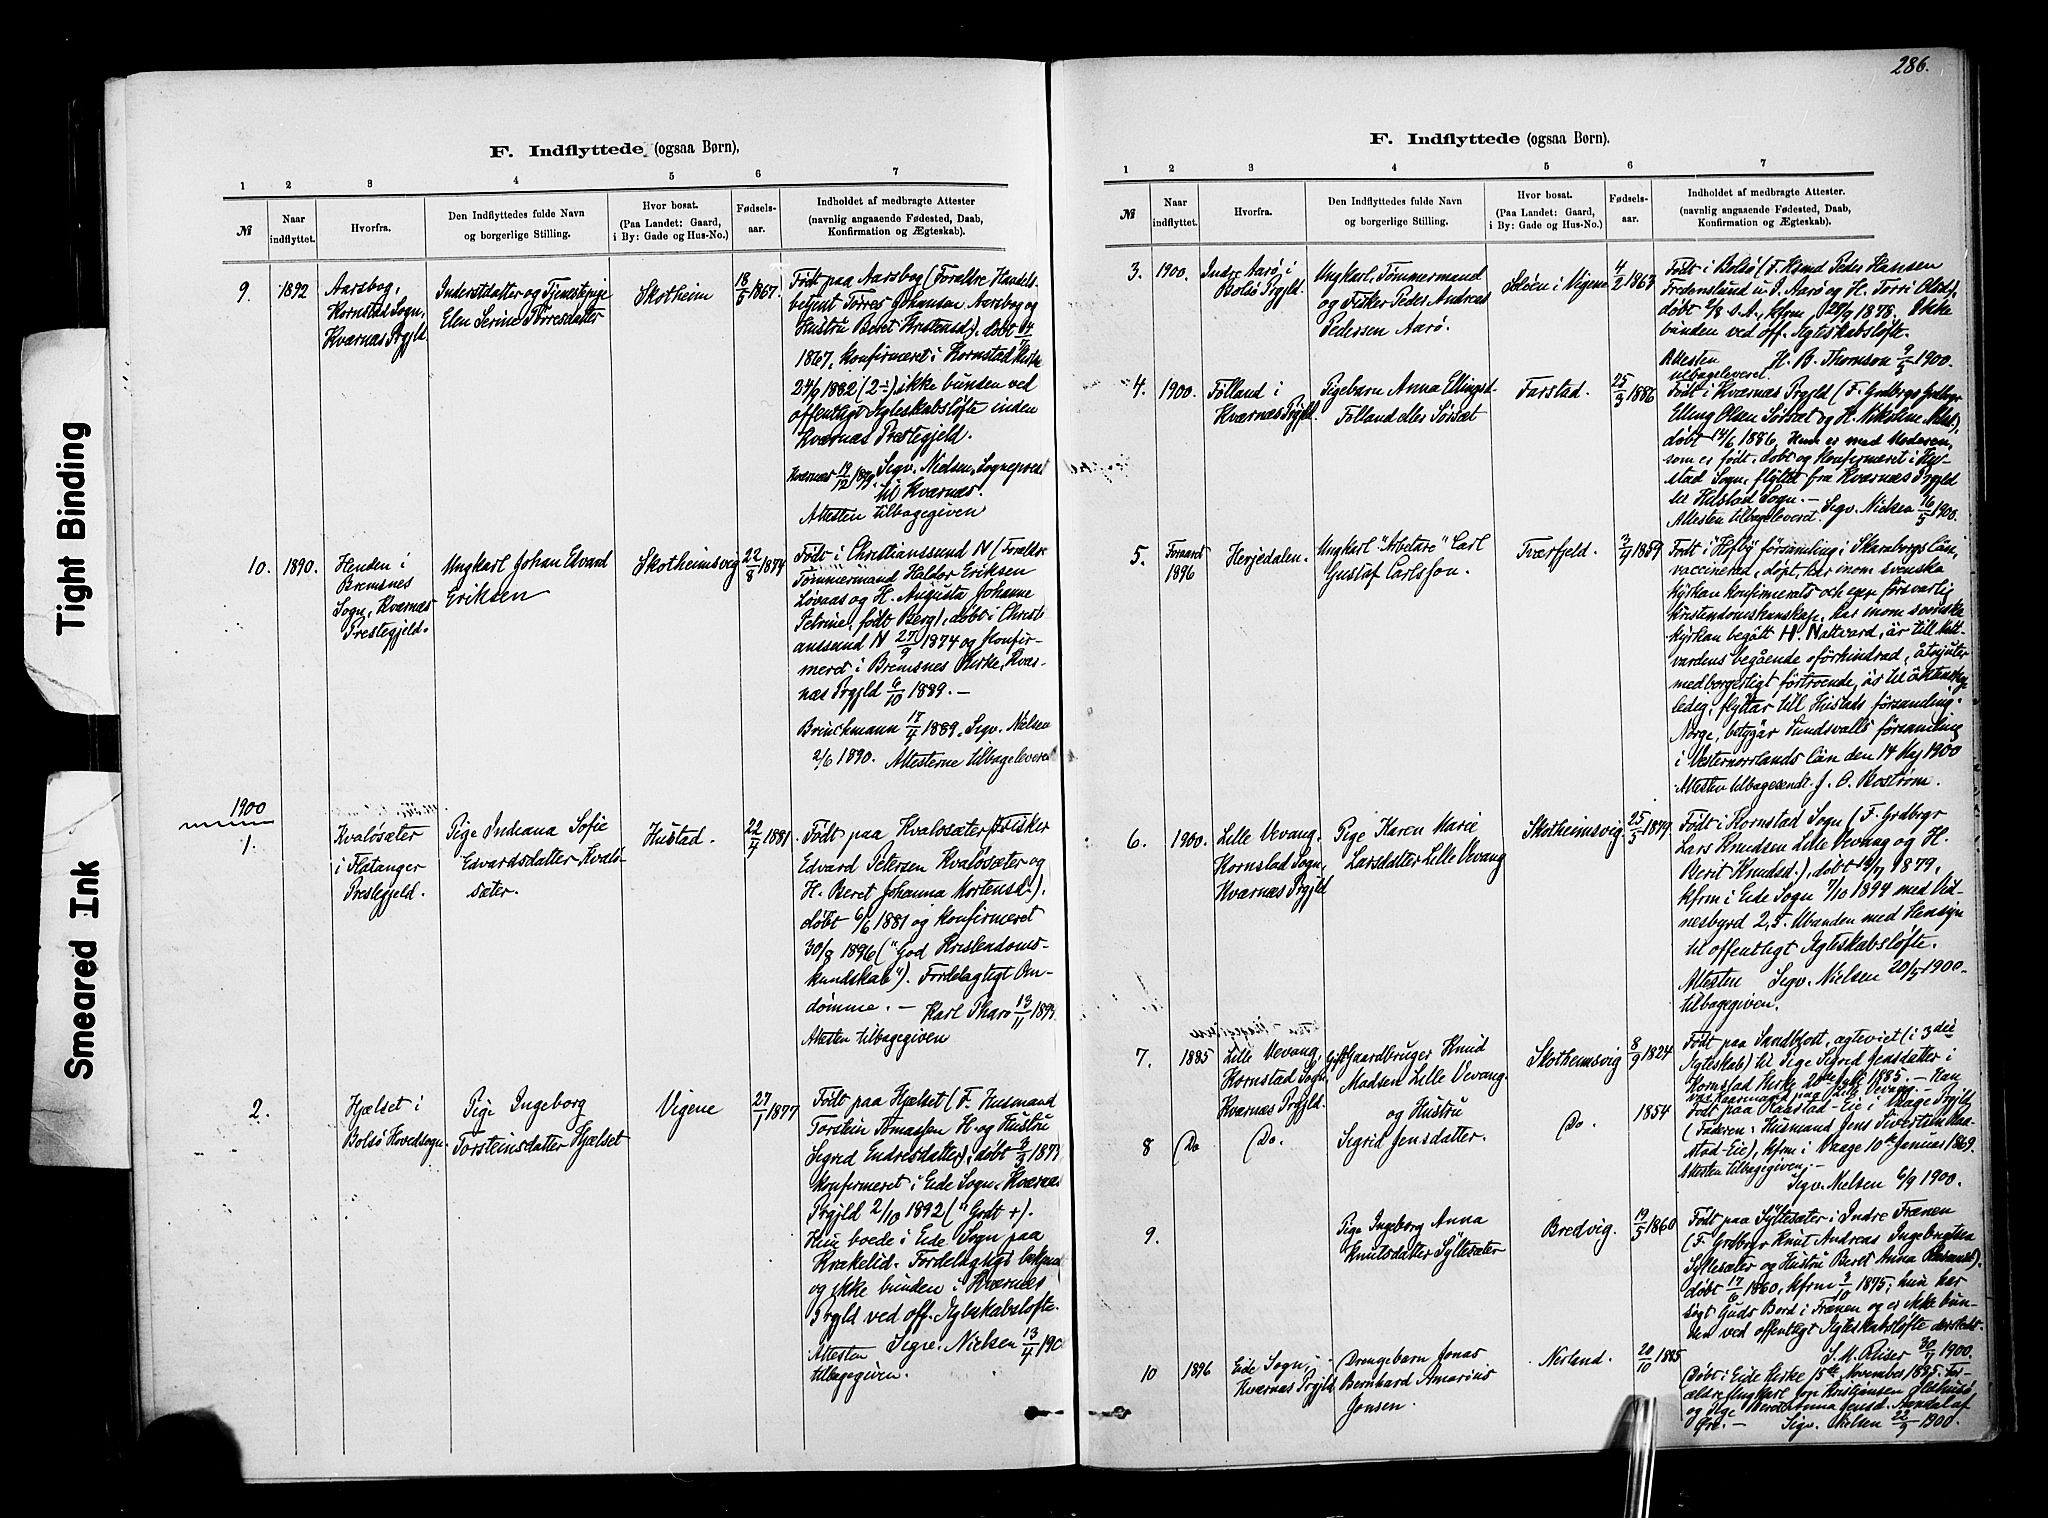 286.
Tight Binding
Smeared Ink
F. Indflyttede (ogsaa Børn),
1 2 3 4 5 6 7
№
Naar
indflyttet.
Hvorfra.
Den Indflyttedes fulde Navn
og borgerlige Stilling.
Hvor bosat.
(Paa Landet: Gaard,
i By: Gade og Hus-No.)
Fødsels-
aar.
Indholdet af medbragte Attester
(navnlig angaaende Fødested, Daab,
Konfirmation og Ægteskab).
9. 1892
Aarsbog,
Kornstad Sogn,
Kværnæs Prgjld.
Inderstdatter og Tjenestepige
Elen Serine Torresdatter
Skotheim
18/5 1867.
Født paa Aarsbog (Forældre Handels-
betjent Torres Johansen Aarsbog og
Hustru Beret Kristensd), døbt
1867, konfirmeret i Kornstad Kirke
24/9 1882 (2÷), ikke bunden ved
offentligt Ægteskabsløfte inden
Kværnæs Præstegjeld.
Kværnæs 19/12 1899. Sigv. Nielsen, Sognepræst
til Kværnæs.
Attesten tilbagegiven
10. 1890.
Henden i
Bremsnes
Sogn, Kværnæs
Prestegjeld.
Ungkarl Johan Edvard
Eriksen
Skotheimsvig
22/8 1874
Født i Christianssund N (Forældre
Tømmermand Haldor Eriksen
Løvaas og H. Augusta Johanne
Petrine, født Berg), døbt i Christi-
anssund N 27/9 1874 og konfir-
meret i Bremsnes Kirke, Kvær-
næs Prgjld 6/10 1889. —
Brinchmann 17/4 1889. Sigv. Nielsen
2/6 1890. Attesterne tilbageleveret
1900
1.
Kvaløsæter
i Flatanger
Prestegjeld.
Pige Indiana Sofie
Edvardsdatter Kvalø-
sæter.
Hustad.
22/4 1881
Født paa Kvaløsæter (Fisker
Edvard Petersen Kvaløsæter og
H. Beret Johanna Mortensd.),
døbt 6/6 1881 og konfirmeret
30/8 1896 ("God Kristendoms-
kundskab"). Fordelagtigt Om-
dømme. — Karl Tharo 13/11 1899.
Attesten tilbagegiven
2.
Hjælset i
Bolsø Hovedsogn
Pige Ingeborg
Torsteinsdatter Hjælset
Vigene
27/1 1877
Født paa Hjælset (F. Husmand
Torstein Tomassen H. og Hustru
Sigrid Endresdatter), døbt 2/3 1877
konfirmeret i Eide Sogn, Kværnæs
Prgjld 2/10 1892 ("Godt +).
Hun boede i Eide Sogn paa
Krækelid. Fordelagtigt bekjendt
og ikke bunden i Kværnæs
Prgjld ved off. Ægteskabsløfte.
Attesten Sigv. Nielsen 13/4 190
tilbagegiven.
F. Indflyttede (ogsaa Børn).
1 2 3 4 5 6 7
№
Naar
indflyttet.
Hvorfra.
Den Indflyttedes fulde Navn
og borgerlige Stilling.
Hvor bosat.
(Paa Landet: Gaard,
i By: Gade og Hus-No.)
Fødsels-
aar.
Indholdet af medbragte Attester.
(navnlig angaaende Fødested, Daab,
Konfirmation og Ægteskab).
3. 1900.
Indre Aarø i
Bolsø Prgjld.
Ungkarl, Tømmermand
og Fisker Peder Andreas
Pedersen Aarø.
i Vigene
4/2 1863
Født i Bolsø (F. Hsmd Peder Hansen
Fredenslund u. I. Aarø og H. Torri Olsd),
døbt 2/8 s. A., kfrm 29/9 1878. Ikke
bunden ved off. Ægteskabsløfte.
Attesten H. B. Thomson 9/5 1900.
tilbageleveret
4. 1900.
Folland i
Kværnæs Prgjld.
Pigebarn Anna Ellingsd.
Folland eller Sørsæt
Farstad.
25/3 1886
Født i Kværnæs Prgjld (F. Grdbrgs
Elling Olsen Sørsæt og H. Nikoline Nilsd.),
døbt 14/6 1886. Hun er med Moderen,
som er født, døbt og konfirmeret i Hu-
stad Sogn, flyttet fra Kværnæs Prgjld
til Hustad Sogn. —
Attesten tilbageleveret. Sigv. Nielsen 16/5 1900.
5.
Foraaret
1896
Herjedalen.
Ungkarl "Arbetare" Carl
Gustaf Carlsson.
Tværfjeld.
3/9 1859
Født i Hofby församling i Skaraborgs län,
vaccinerad, döpt, har inom svenska
kyrkan konfirmerats och eger försvarlig
kristendomskunskap, har inom svenska
kyrkan begått H. Nattvard, är till Natt-
vardens begående oförhindrad, åtnjuter
medborgerligt förtroende, är til äktenskap
ledig, flyttar till Hustads församling i
Norge, betygar Sundsvalls församling
i Vesternorrlands län den 14 Maj 1900
Attesten tilbagesendt. J. O. Boström.
6. 1900.
Lille Vevang,
Kornstad Sogn,
Kværnæs Prgjld
Pige Karen Marie
Larsdatter Lille Vevang
Skotheimsvig
25/5 1879
Født i Kornstad Sogn (F. Grdbrgr
Lars Knudsen Lille Vevang og H.
Berit Knudsd.), døbt 14/7 1879,
kfrm i Eide Sogn 7/10 1894 med Vid-
næsbyrd 2,5. Ubunden med Hensyn
til offentligt Ægteskabsløfte.
Attesten Sigv. Nielsen 20/5 1900.
tilbagegiven.
7. 1885
Lille Vevang,
Kornstad Sogn,
Kværnæs Prgjld.
Gift Gaardbruger Knud
Madsen Lille Vevang
og Hustru
Skotheimsvig
8/9 1824
Født paa Sandblost, ægteviet (i 3die
Ægteskab) til Pige Sigrid Jensdatter i
Kornstad Kirke 20de Sept. 1885. — Han
var Kaarmand paa Lille Vevang.
8 Do Do.
Sigrid Jensdatter.
Do.
1854
Født paa Raastad-Eie i Vaage Prgjld,
(Faderen: Husmand Jens Sivertsen Raa-
stad-Eie), kfrm i Vaage 10de Januar 1869.
Attesten tilbagegiven. —
Sigv. Nielsen 6/9 1900.
9.
Pige Ingeborg Anna
Knutsdatter Syltesæter
Bredvig.
19/5 1860
Født paa Syltesæter i Indre Frænen
(F. Grdbrgr Knut Andreas Ingebrigtsen
Syltesæter og Hustru Beret Anna
døbt 17/6 1860, kfrm 3/10 1875; hun har
søgt Guds Bord i Frænen og er ikke bun-
den ved offentligt Ægteskabsløfte dersteds.
S. M. Reiser 30/7 1900.
10 1896
Eide Sogn,
Kværnæs Prgjld
Drengebarn Jonas
Bernhard Amarius
Jonsen.
Nerland.
20/10 1885
Døbt i Eide Kirke 15de November 1885. For-
ældre Ungkarl Jon Kristiansen
og Pige Beret Anna Jensd.
Øre. — Sigv. Nielsen 22/9 1900.